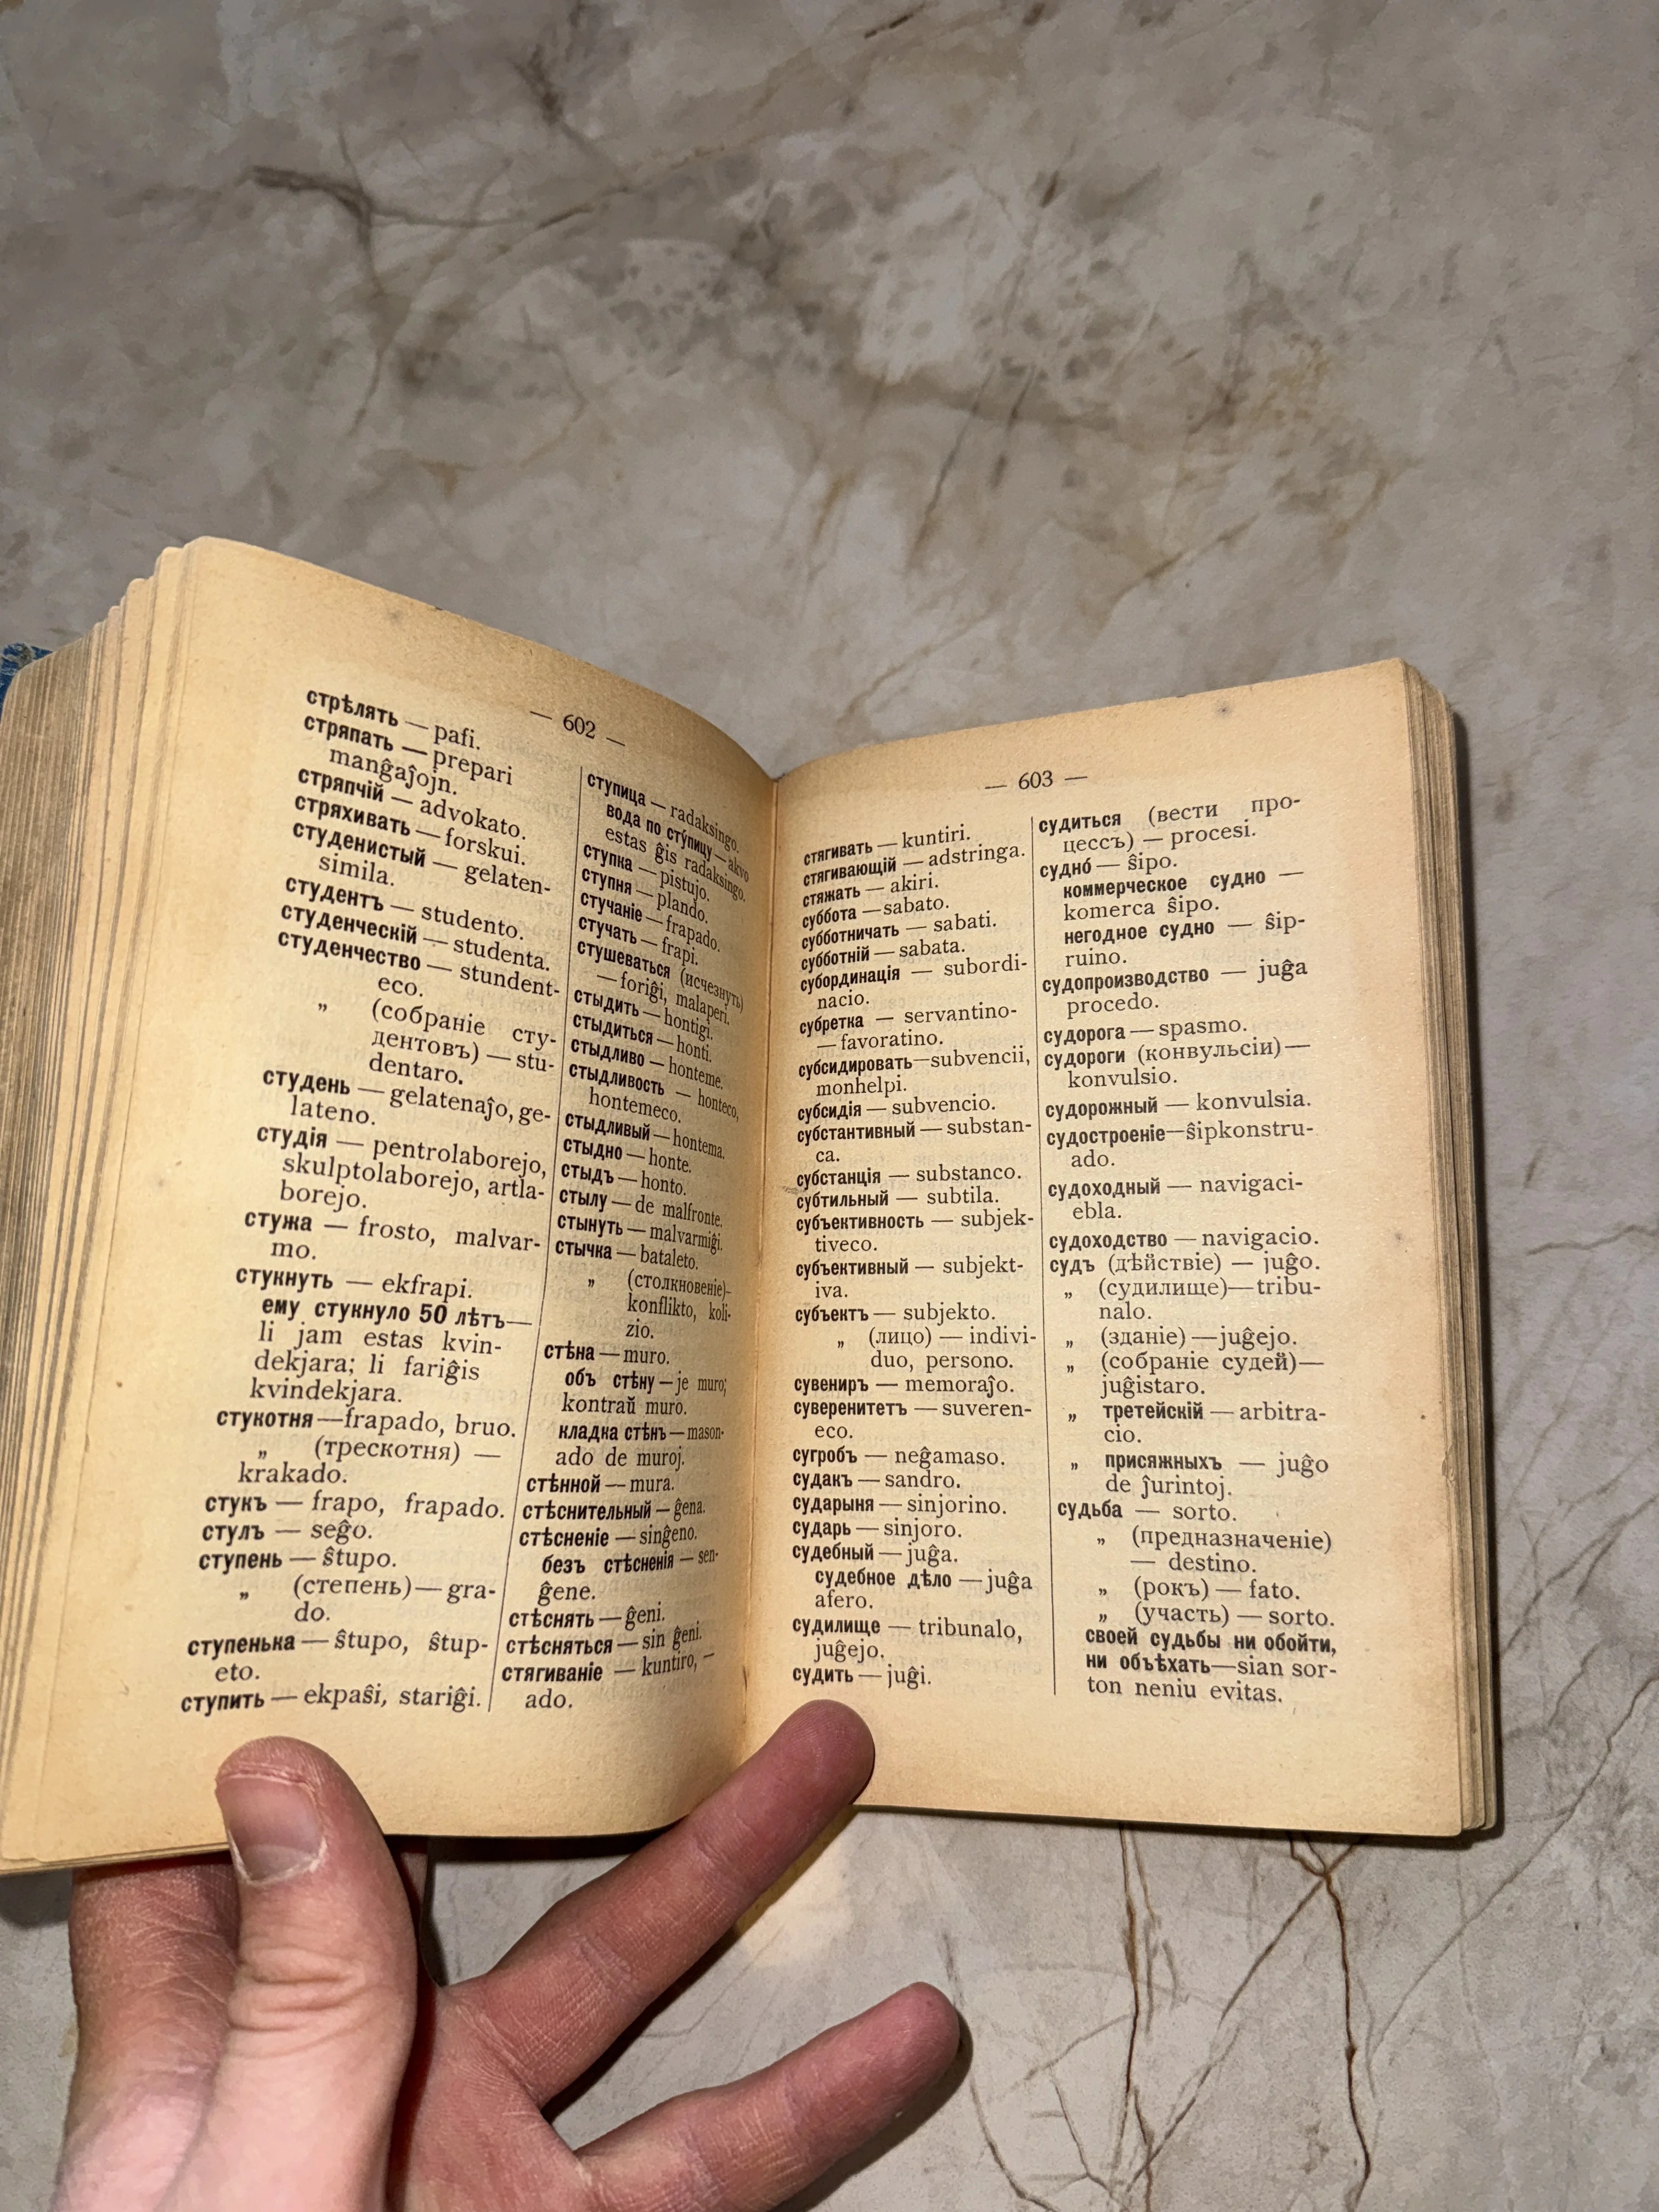 — 602 —
стрѣлять — pafi.
стряпать — prepari
manĝaĵojn.
стряпчій — advokato.
стряхивать — forskui.
студенистый — gelaten-
simila.
студентъ — studento.
студенческій — studenta.
студенчество — stundent-
eco.
„ (собраніе сту-
дентовъ) — stu-
dentaro.
студень — gelatenaĵo, ge-
lateno.
студія — pentrolaborejo,
skulptolaborejo, artla-
borejo.
стужа — frosto, malvar-
mo.
стукнуть — ekfrapi.
ему стукнуло 50 лѣтъ—
li jam estas kvin-
dekjara; li fariĝis
kvindekjara.
стукотня—frapado, bruo.
„ (трескотня) —
krakado.
стукъ — frapo, frapado.
стулъ — seĝo.
ступень — ŝtupo.
„ (степень) — gra-
do.
ступенька — ŝtupo, ŝtup-
eto.
ступить — ekpaŝi, stariĝi.
ступица — radaksingo.
вода по ступицу — akvo
estas ĝis radaksingo.
ступка — pistujo.
ступня — plando.
стучаніе — frapado.
стучать — frapi.
стушеваться (исчезнуть)
— foriĝi, malaperi.
стыдить — hontigi.
стыдиться — honti.
стыдливо — honteme.
стыдливость — honteco,
hontemeco.
стыдливый — hontema.
стыдно — honte.
стыдъ — honto.
стылу — de malfronte.
стынуть — malvarmiĝi.
стычка — bataleto.
„ (столкновеніе)-
konflikto, koli-
zio.
стѣна — muro.
объ стѣну — je muro;
kontraŭ muro.
кладка стѣнъ — mason-
ado de muroj.
стѣнной — mura.
стѣснительный — ĝena.
стѣсненіе — sinĝeno.
безъ стѣсненія — sen-
ĝene.
стѣснять — ĝeni.
стѣсняться — sin ĝeni.
стягиваніе — kuntiro, —
ado.
— 603 —
стягивать — kuntiri.
стягивающій — adstringa.
стяжать — akiri.
суббота — sabato.
субботничать — sabati.
субботній — sabata.
субординація — subordi-
nacio.
субретка — servantino-
— favoratino.
субсидировать—subvencii,
monhelpi.
субсидія — subvencio.
субстантивный — substan-
ca.
субстанція — substanco.
субтильный — subtila.
субъективность — subjek-
tiveco.
субъективный — subjekt-
iva.
субъектъ — subjekto.
„ (лицо) — indivi-
duo, persono.
сувениръ — memoraĵo.
суверенитетъ — suveren-
eco.
сугробъ — neĝamaso.
судакъ — sandro.
сударыня — sinjorino.
сударь — sinjoro.
судебный — juĝa.
судебное дѣло — juĝa
afero.
судилище — tribunalo,
juĝejo.
судить — juĝi.
судиться (вести про-
цессъ) — procesi.
судно́ — ŝipo.
коммерческое судно —
komerca ŝipo.
негодное судно — ŝip-
ruino.
судопроизводство — juĝa
procedo.
судорога — spasmo.
судороги (конвульсіи) —
konvulsio.
судорожный — konvulsia.
судостроеніе—ŝipkonstru-
ado.
судоходный — navigaci-
ebla.
судоходство — navigacio.
судъ (дѣйствіе) — juĝo.
„ (судилище)—tribu-
nalo.
„ (зданіе) —juĝejo.
„ (собраніе судей)—
juĝistaro.
„ третейскій — arbitra-
cio.
„ присяжныхъ — juĝo
de ĵurintoj.
судьба — sorto.
„ (предназначеніе)
— destino.
„ (рокъ) — fato.
„ (участь) — sorto.
своей судьбы ни обойти,
ни объѣхать—sian sor-
ton neniu evitas.